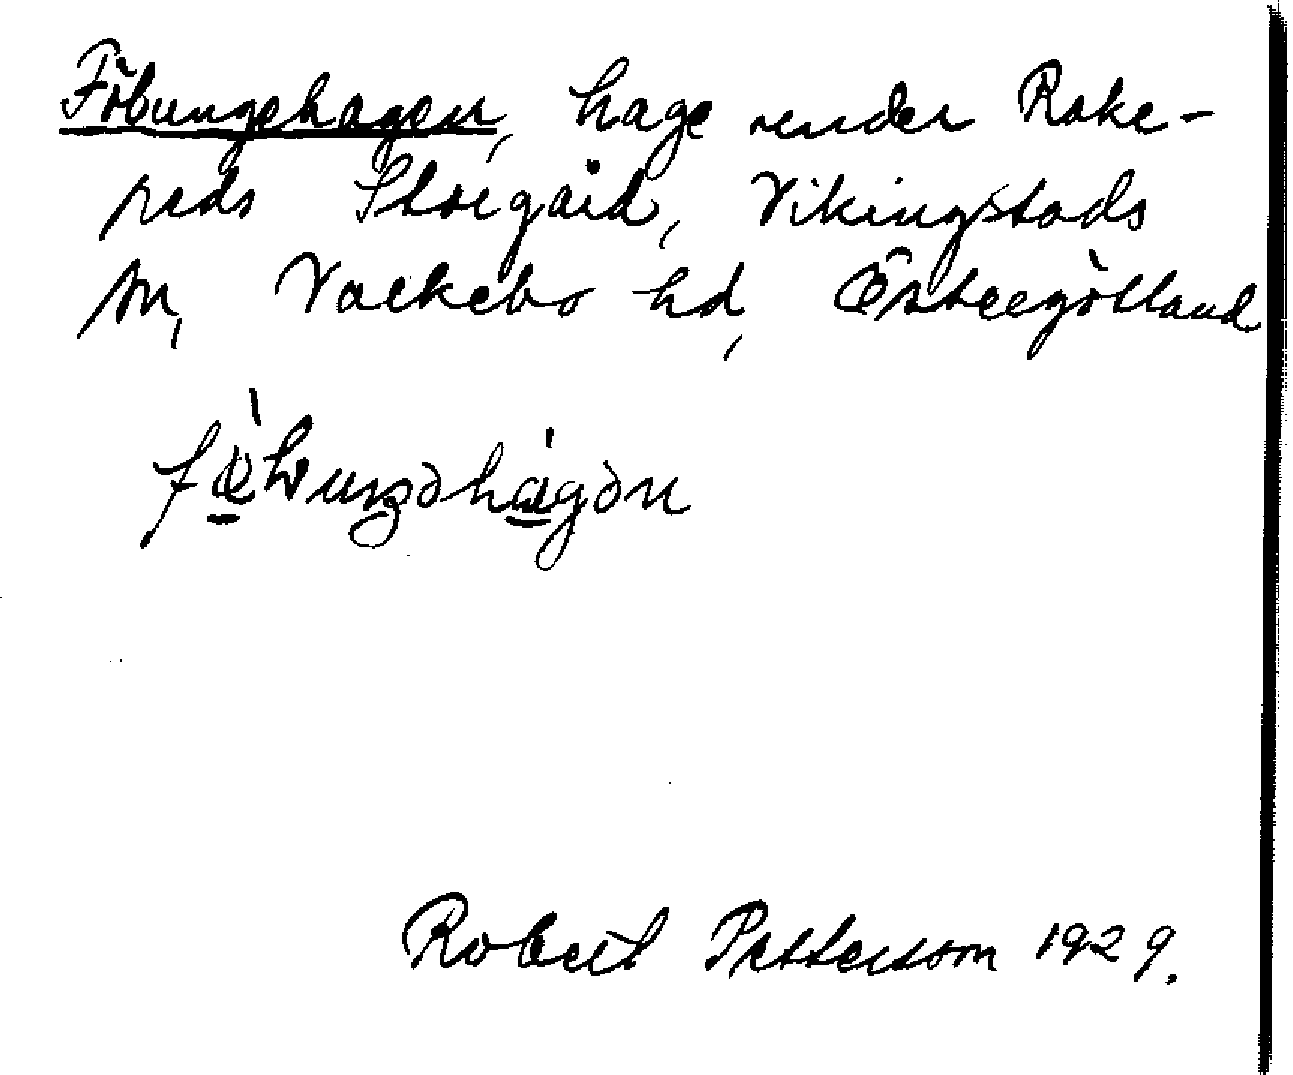 Föbungehagen, hage under Rake-
reds Storgård, Vikingstads
sn, Valkebo hd, Östergötland
Robert Pettersson 1929.